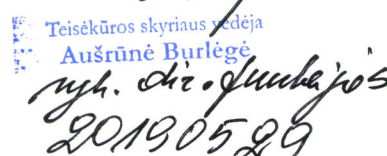 Teisėkūros skyriaus vedėja
Aušrūnė Burlėgė
vyk. dir. funkcijos
2019 05 29